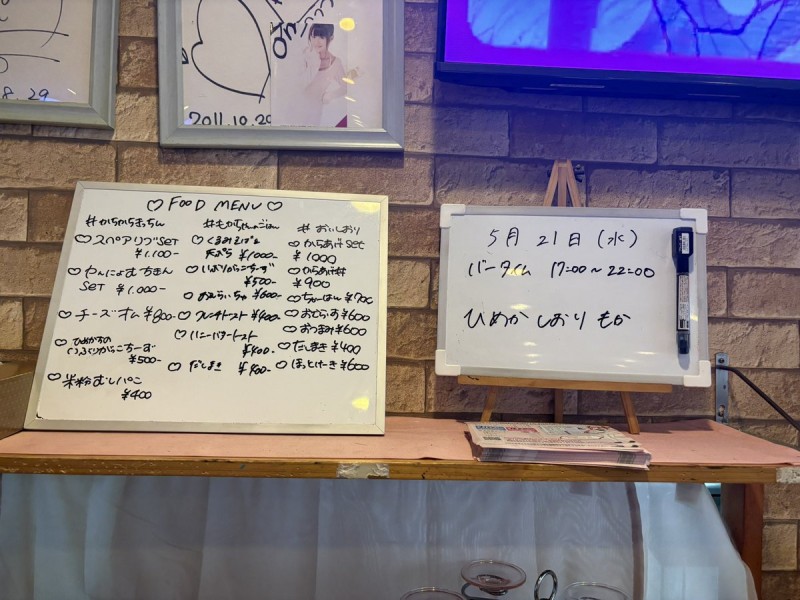 8.29
2011.10.29
♡ FOOD MENU ♡
#からからきっちん
♡ スペアリブSET
¥1.100-
♡ やんにょむちきん
SET ¥1.000-
♡ チーズオム ¥800-
♡ ひめかちの
いぶりがっこちーず
¥500-
♡ 米粉むしパン
¥400
#もかちゃんごはん
天ぷら ¥1000-
♡ いぶりがっこちーず
¥500-
¥600-
♡ フレンチトースト ¥400-
♡ ハニーバタートースト
¥400-
♡ だしまき ¥400-
# おいしおり
♡ からあげ set
¥1000
♡ からあげ丼
¥900
♡ ちゃーはん ¥700
♡ おむらいす ¥600
♡ おつまみ ¥600
♡ だしまき ¥400
♡ ほっとけーき ¥600
5月 21日 (水)
バータイム 17:00~22:00
ひめか しおり もか